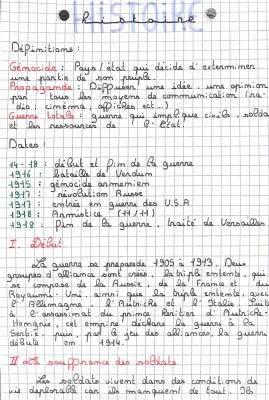 HISTOIRE
Histoire
Définitions :
Génocide : Pays / état qui décide d'exterminer
une partie de son peuple.
Propagande : Diffuser une idée, une opinion
par tous les moyens de communication (ra-
dio, cinéma, affiches ect...)
Guerre totale : guerre qui implique civils, soldats
et les ressources de l'Etat.
Dates :
14-18 : début et fin de la guerre
1916 : bataille de Verdun
1915 : génocide arménien
1917 : révolution Russe
1917 : entrée en guerre des U.S.A
1918 : Armistice (11/11)
1918 : Fin de la guerre, traité de Versailles
I. Début
La guerre se prépare de 1905 à 1913. Deux
groupes d'alliance sont créés, la triple entente, qui
se compose de la Russie, de la France et du
Royaume-Uni, ainsi que la triple entente, avec
l'Allemagne, l'Autriche et l'Italie. Suite
à l'assassinat du prince héritier d'Autriche-
Hongrie, cet empire déclare la guerre à la
Serbie, puis, par le jeu des alliances, la guerre
débute en 1914.
II La souffrance des soldats
Les soldats vivent dans des conditions de
vie déplorable car ils manquent de tout. Ils